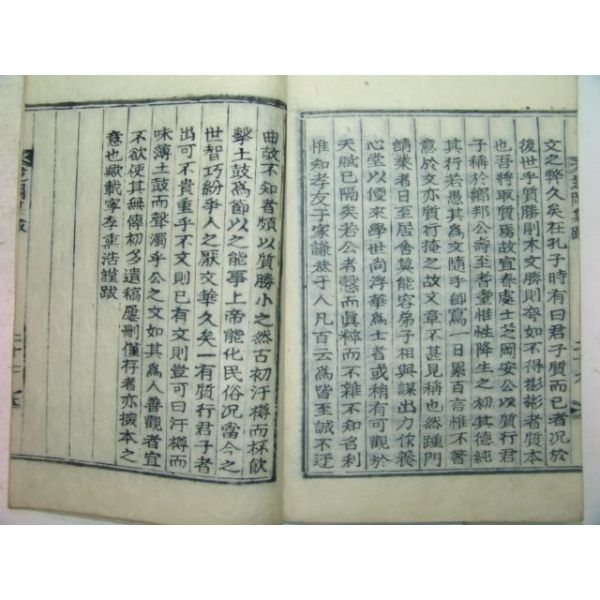 文之弊久矣在孔子時有曰君子質而已者況於
後世乎質勝則木文勝則夸如不得彬彬者質本
也吾將取質焉故宜春處士芝岡安公以質行君
子稱於鄉邦公壽至耆耋惟性降生之初其德純
其行若愚其爲文隨手卽寫一日累百言惟不著
意於文亦質行掩之故文章不甚見稱也然踵門
請業者日至舍莫能容弟子相與謀出力俵養
心堂以優來學世尚浮華爲士者或稍有可觀於
天賦已隔矣若公者慤而眞粹而不雜不知名利
惟知孝友于家謙恭于人凡百云爲皆至誠不迂
曲故不知者頗以質勝小之然古初汙樽而杯飮
擊土鼓爲節以之能事上帝能化民俗況當今之
世智巧紛乎人之厭文華久矣一有質行君子者
出可不貴重乎不文則已有文則豈可曰汙樽而
味薄土鼓而聲濁乎公之文如其爲人善觀者宜
不欲使其無傳初多遺稿屢刪僅存者亦撥本之
意也歟載寧李熏浩謹跋